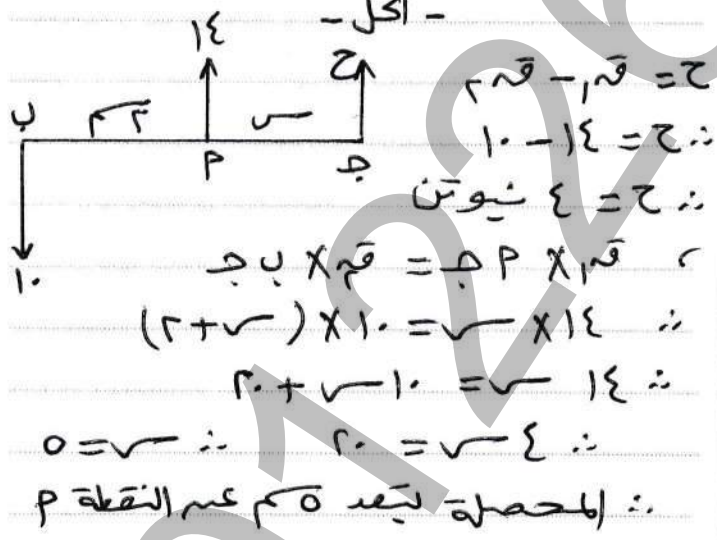 - الحل -
١٤
ح
ب
٢سم
س
م
جـ
١٠
ح = ق١ - ق٢
∴ ح = ١٤ - ١٠
∴ ح = ٤ نيوتن
، ق١ × م جـ = ق٢ × ب جـ
∴ ١٤ × س = ١٠ × (س + ٢)
∴ ١٤ س = ١٠ س + ٢٠
∴ ٤ س = ٢٠ ∴ س = ٥
∴ المحصلة تبعد ٥ سم عن النقطة م